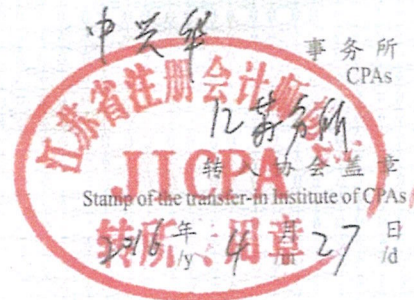 中兴华 事务所
CPAs
江苏省注册会计师协会
江苏分所
JICPA
转入协会盖章
Stamp of the transfer-in Institute of CPAs
转所专用章
2016年 4月 27日
/y /m /d